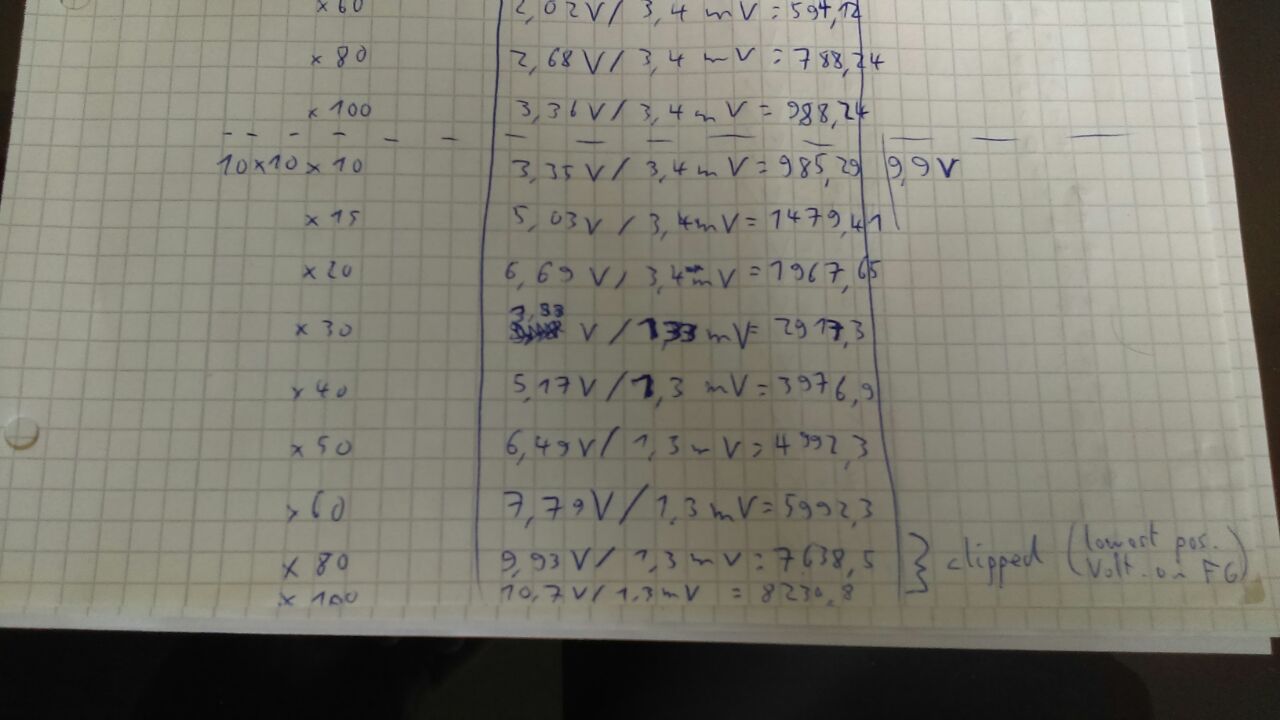 x 60 2,02V / 3,4 mV = 594,12
x 80 2,68 V / 3,4 mV = 788,24
x 100 3,36V / 3,4 mV = 988,24
10x10 x 10 3,35 V / 3,4 mV = 985,29 9,9V
x 15 5,03V / 3,4mV = 1479,41
x 20 6,69 V / 3,4 mV = 1967,65
x 30 3,88 V / 1,33 mV = 2917,3
x 40 5,17V / 1,3 mV = 3976,9
x 50 6,49V / 1,3 mV = 4992,3
x 60 7,79V / 1,3 mV = 5992,3
x 80 9,93V / 1,3 mV = 7638,5 } clipped (lowest pos. Volt. on FG)
x 100 10,7V / 1,3mV = 8230,8